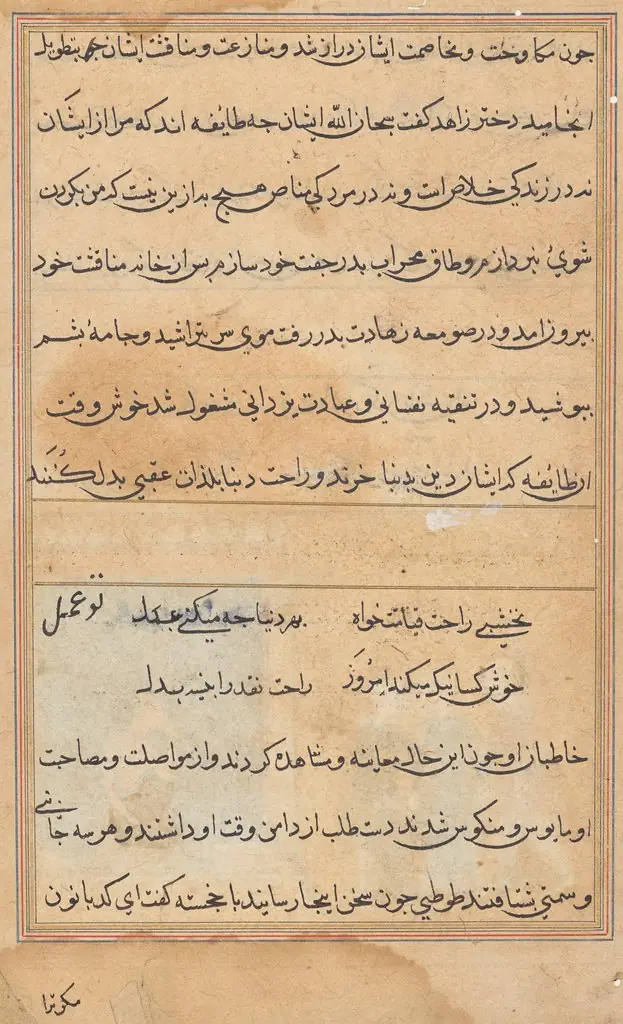 جون مکاوحت و مخاصمت ایشان دراز شد و منازعت و مناقشت ایشان بتطویل
انجامید دختر زاهد کفت سبحان الله ایشان جه طایفه اند که مرا از ایشان
نه در زندکی خلاص است و نه در مردکی مناص هیچ به ازین نیست که من بکردن
شوئ نپردازم و طاق محراب بدر جفت خود سازم بس از خانه مناقشت خود
بیرون امد و در صومعه زهادت بدر رفت موی سر بتراشید و جامهٔ بشم
ببوشید و در تنقیه نفسانی و عبادت یزدانی مشغول شد خوش وقت
ان طایفه که ایشان دین بدنیا خرند و راحت دنیا بلذات عقبی بدل کنند
نخشبی راحت قیامت خواه بهر دنیا جه میکنی عمل تو عمل
خوش کسانیکه میکنند امروز راحت نقد را بنسیه بدل
خاطبان او جون این حال معاینه و مشاهده کردند و از مواصلت و مصاحبت
او مایوس و منکوس شدند دست طلب از دامن وقت او داشتند و هر سه جانبی
و سمتی بشتافتند طوطی جون سخن اینجا رسانید با خجسته کفت ای کدبانو
مکو ترا